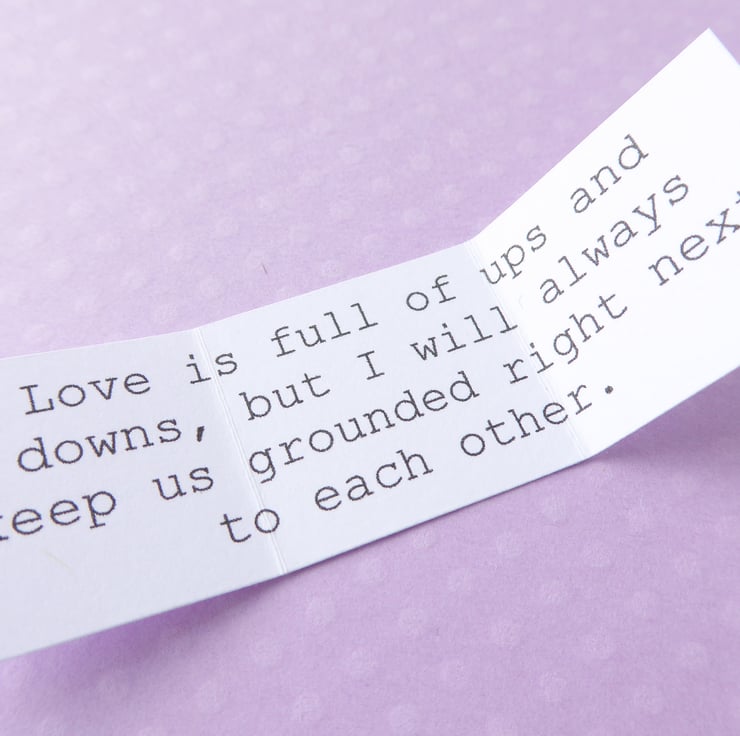 Love is full of ups and
downs, but I will always
keep us grounded right next
to each other.